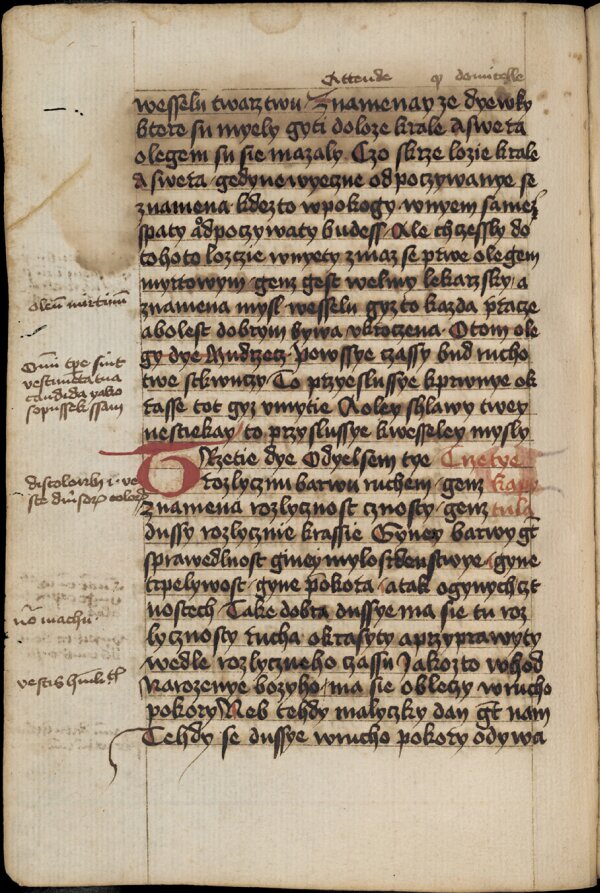 Attende
wesselu twarz twu Znamenay ze dyewky
ktere su myely gyti do loze krale Aswera
olegem su sie mazaly Czo skrze lozie krale
Aswera gedyne wyeczne odpoczywanye se
znamena kdezto w pokogy w nyem sam ez
spaty a odpoczywaty budess Ale chczessly do
tohoto lozcie wnyety zmaz se prwe olegem
myrtowym genz gest welmy lekarzsky a
znamena mysl wesselu gyzto kazda prace
a bolest dobrym bywa vkroczena O tom ole
gy dye Mudrzecz Powssye czassy bud rucho
twe stkwuczy To przyeslussye kprwnye ok
rasse tot gyz vmytie A oley s hlawy twey
nesciekay to przyslussye kwesseley mysly
Trzetie dye Odyelsem tye Trzetye
rozlycznu barwu ruchem genz kapy
znamena rozlycznost cznosty genz tula
dussy rozlycznie krassie Gyney barwy gt
sprawedlnost giney mylostdenstwye gyne
trpelywost gyne pokora a tak o gynych czt
nostech Take dobra dussye ma sie tu roz
lycznosty rucha okrasyty a przyprawyty
wedle rozlyczneho czassu Jakozto w hod
Narozenye bozyho ma sie obleczy w rucho
pokory Neb tehdy malyczky dan gt nam
Tehdy se dussye w rucho pokory odywa
oleum mirtinum
Omni tpe sint
vestimenta tua
candida yako
sopussiek ssam
discoloribus i ve
ste diuersorum color
vestis humilitatis